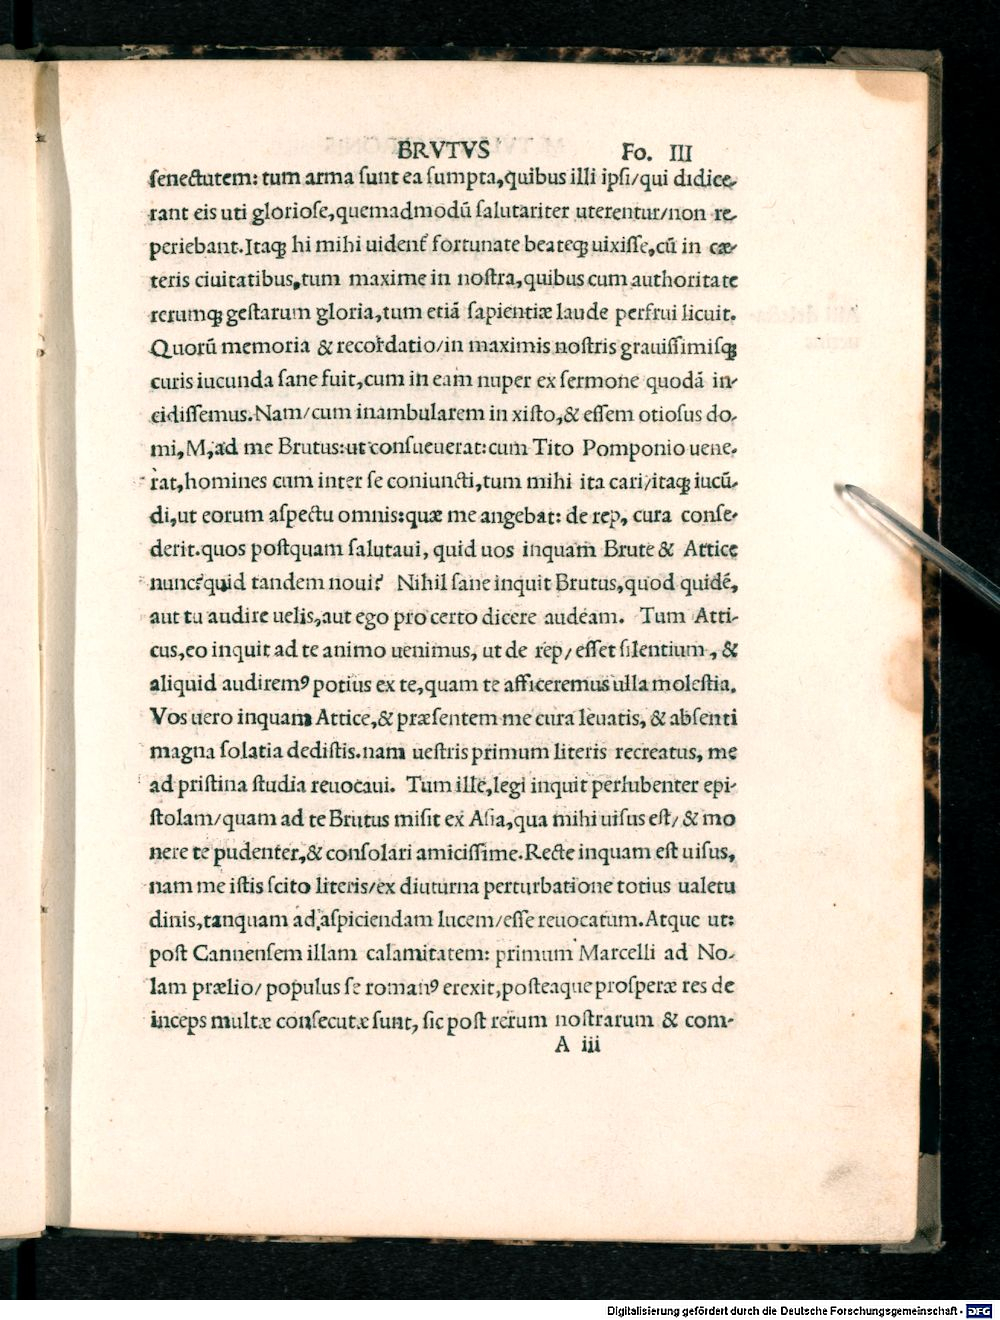 BRVTVS Fo. III
ſenectutem: tum arma ſunt ea ſumpta,quibus illi ipſi/qui didice-
rant eis uti glorioſe,quemadmodū ſalutariter uterentur/non re-
periebant.Itaqꝫ hi mihi uident᷑ fortunate beateqꝫ uixiſſe,cū in cæ-
teris ciuitatibus,tum maxime in noſtra,quibus cum authoritate
rerumqꝫ geſtarum gloria,tum etiā ſapientiæ laude perfrui licuit.
Quorū memoria & recordatio/in maximis noſtris grauiſſimiſqꝫ
curis iucunda ſane fuit,cum in eam nuper ex ſermone quodā in-
cidiſſemus.Nam/cum inambularem in xiſto,& eſſem otioſus do-
mi,M,ad me Brutus:ut conſueuerat:cum Tito Pomponio uene-
rat,homines cum inter ſe coniuncti,tum mihi ita cari/itaqꝫ iucū-
di,ut eorum aſpectu omnis:quæ me angebat: de rep, cura conſe-
derit.quos poſtquam ſalutaui, quid uos inquam Brute & Attice
nunc?quid tandem noui? Nihil ſane inquit Brutus,quod quidē,
aut tu audire uelis,aut ego pro certo dicere audeam. Tum Atti-
cus,eo inquit ad te animo uenimus, ut de rep/ eſſet ſilentium, &
aliquid audiremꝰ potius ex te,quam te afficeremus ulla moleſtia.
Vos uero inquam Attice,& præſentem me cura leuatis, & abſenti
magna ſolatia dediſtis.nam ueſtris primum literis recreatus, me
ad priſtina ſtudia reuocaui. Tum ille,legi inquit perlubenter epi-
ſtolam/quam ad te Brutus miſit ex Aſia,qua mihi uiſus eſt/ & mo
nere te pudenter,& conſolari amiciſſime.Recte inquam eſt uiſus,
nam me iſtis ſcito literis/ex diuturna perturbatione totius ualetu
dinis,tanquam ad aſpiciendam lucem/eſſe reuocatum.Atque ut:
poſt Cannenſem illam calamitatem: primum Marcelli ad No-
lam prælio/ populus ſe romanꝰ erexit,poſteaque proſperæ res de
inceps multæ conſecutæ ſunt, ſic poſt rerum noſtrarum & com-
A iii
Digitalisierung gefördert durch die Deutsche Forschungsgemeinschaft - DFG